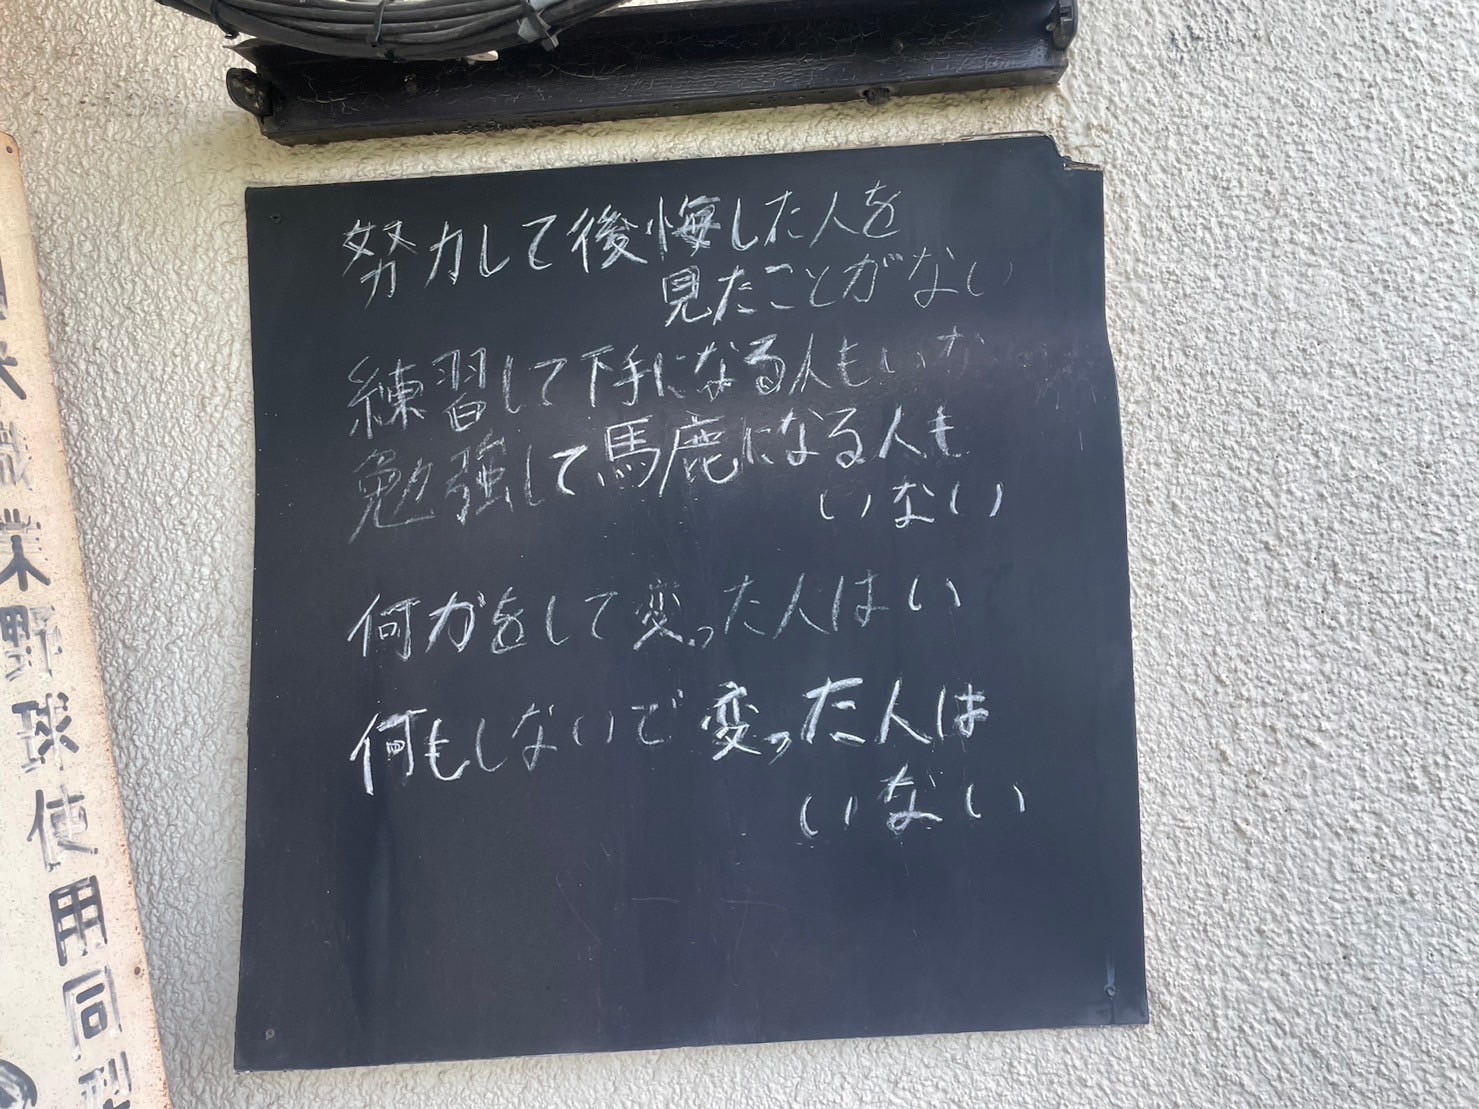 努力して後悔した人を
見たことがない
練習して下手になる人もいな
勉強して馬鹿になる人も
いない
何かをして変った人はい
何もしないで変った人は
いない
職業野球使用同型